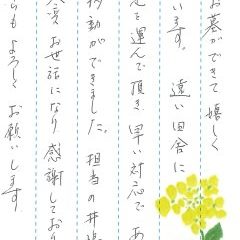 お墓ができて嬉しく
います。 遠い田舎に
を運んで頂き 早い対応で あ
動ができました。 担当の井
お世話になり 感謝しており
らも よろしく お願いします